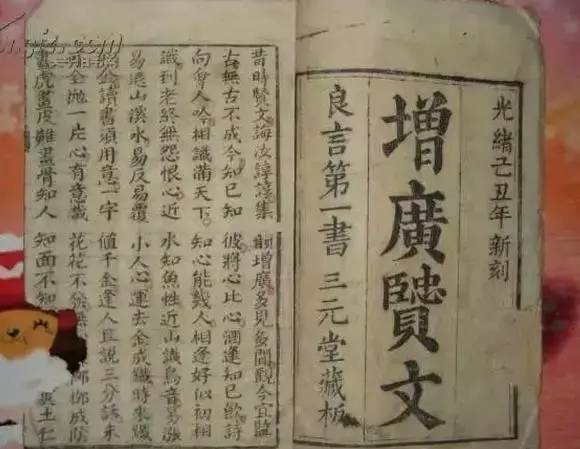 光緒己丑年新刻
增廣贒文
良言第一書 三元堂藏板
昔時賢文誨汝諄諄集韻增廣多見多聞觀今宜鑒
古無古不成今知已知彼將心比心酒逢知已飲詩
向會人吟相識滿天下知心能幾人相逢好似初相
識到老終無怨恨心近水知魚性近山識鳥音易漲
易退山溪水易反易覆小人心運去金成鐵時來鐵
似金讀書須用意一字值千金逢人且說三分話未
全拋一片心有意栽花花不發無成陰
畫虎畫皮難畫骨知人知面不知土仁